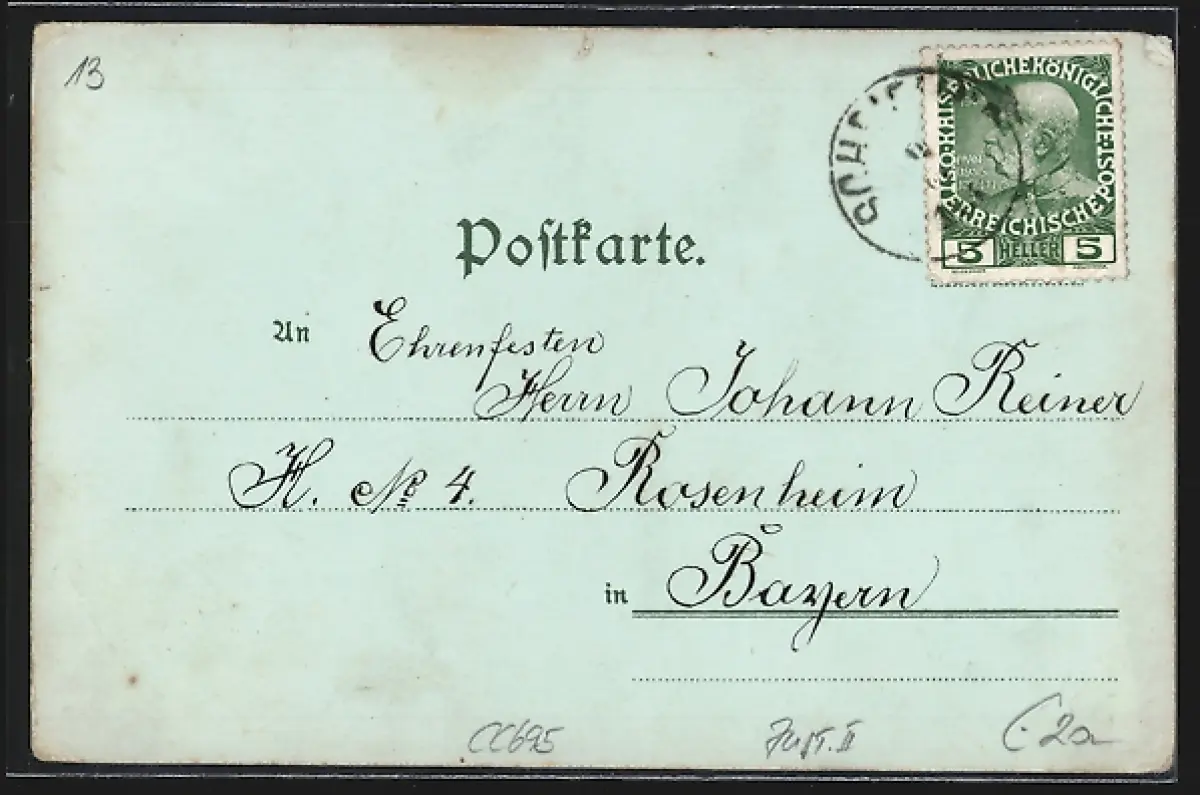 13
KAISERLICHEKÖNIGLICHE·
ÖSTERREICHISCHE POST
5 HELLER 5
Postkarte.
An Ehrenfesten
Herrn Johann Reiner
H. № 4. Rosenheim
in Bayern
CC695 C 2a